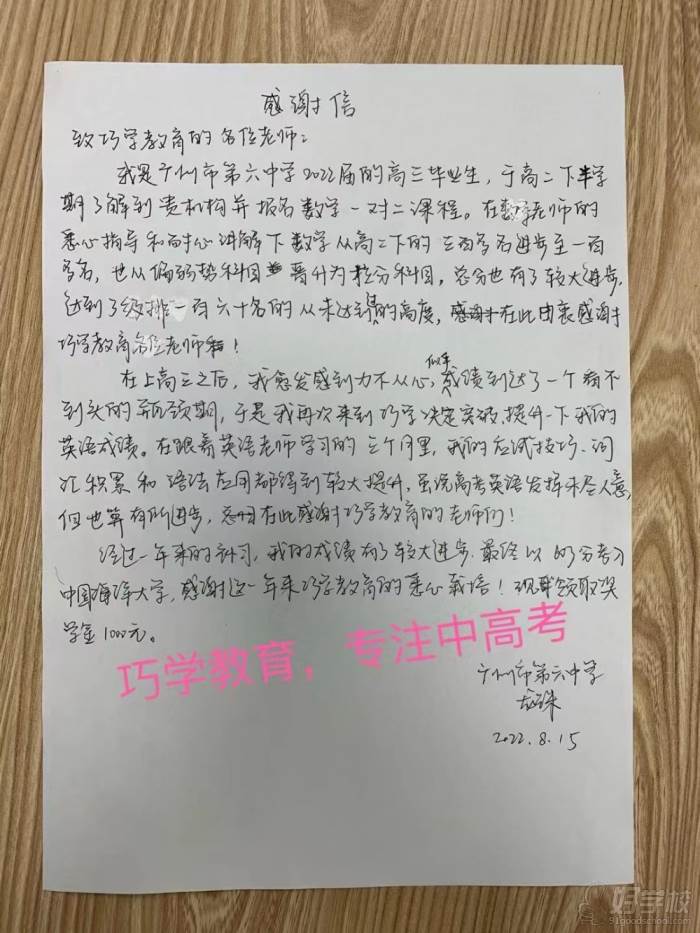 感谢信
致巧学教育的各位老师：
我是广州市第六中学2022届的高三毕业生，于高二下半学
期了解到贵机构并报名数学一对二课程。在数学老师的
悉心指导和耐心讲解下数学从高二下的三百多名进步至一百
多名，也从偏弱势科目晋升为拉分科目。总分也有了较大进步，
达到了级排一百六十名的从未达到的高度，在此由衷感谢
巧学教育各位老师！
在上高三之后，我愈发感到力不从心，似乎成绩到达了一个看不
到头的瓶颈期，于是我再次来到巧学决定突破、提升一下我的
英语成绩。在跟着英语老师学习的三个月里，我的应试技巧、词
汇积累和语法应用都得到较大提升，虽说高考英语发挥未尽人意，
但也算有所进步，在此感谢巧学教育的老师们！
经过一年来的补习，我的成绩有了较大进步，最终以分考入
中国海洋大学，感谢这一年来巧学教育的悉心栽培！现我领取奖
学金1000元。
巧学教育，专注中高考
广州市第六中学
2022.8.15
好学校
91goodschool.com